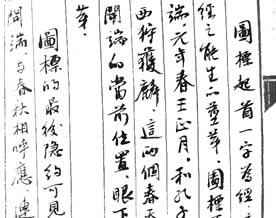 圖標起首一字為經
經之能生 圖標
端元年春王正月。和孔子
西狩獲麟 這兩個春天
開端的當前位置,眼下
芽。
圖標的最後隱約可見
開端,与春秋相呼應,連